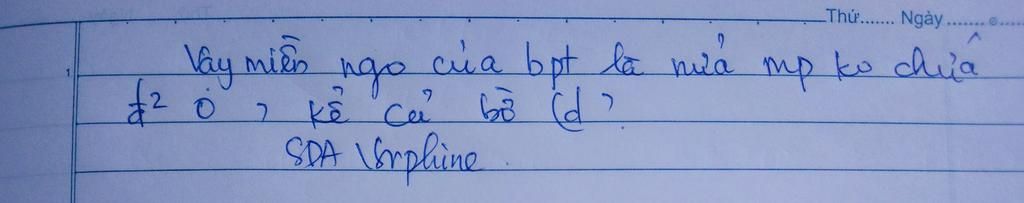 Thứ....... Ngày.......
Vậy miền ngo của bpt là nửa mp ko chứa
O, kể cả bờ (d)
SDA